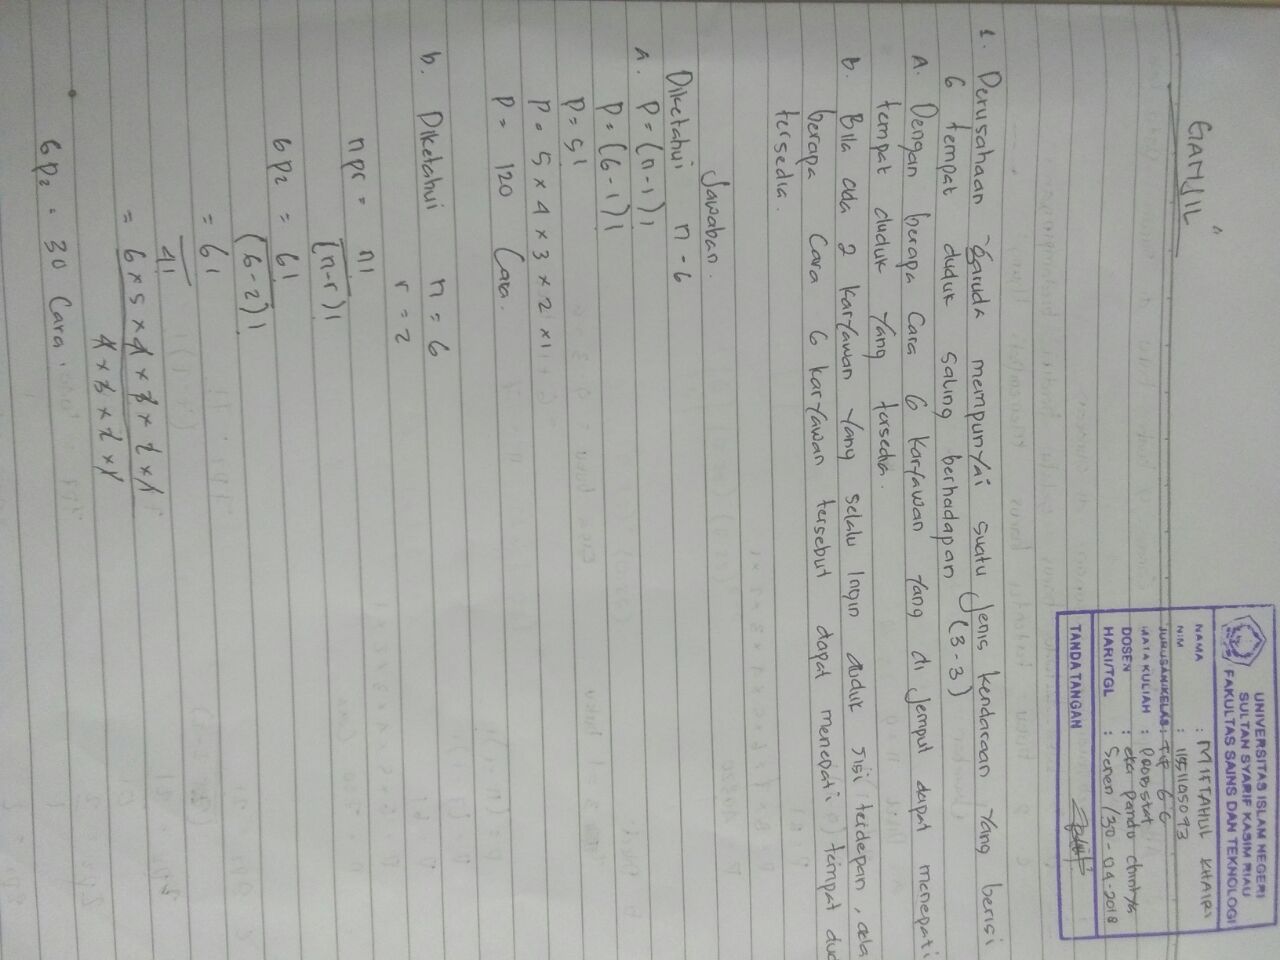 GANJIL
UNIVERSITAS ISLAM NEGERI
SULTAN SYARIF KASIM RIAU
FAKULTAS SAINS DAN TEKNOLOGI
NAMA : MIFTAHUL KHAIRI
NIM : 11551105093
JURUSAN/KELAS : TIF 6G
MATA KULIAH : PROBSTAT
DOSEN : eka pandu
HARI/TGL : Senen / 30-04-2018
TANDA TANGAN
1. Perusahaan Garuda mempunyai suatu Jenis kendaraan yang berisi
6 tempat duduk saling berhadapan (3-3)
A. Dengan berapa Cara 6 karyawan yang di Jemput dapat menepati
tempat duduk yang tersedia.
b. Bila ada 2 karyawan yang selalu Ingin duduk sisi terdepan, ada
berapa Cara 6 karyawan tersebut dapat menepati tempat dud
tersedia.
Jawaban.
Diketahui n - 6
a. P = (n-1)!
P = (6-1)!
P = 5!
P = 5 x 4 x 3 x 2 x 1
P = 120 Cara.
b. Diketahui n = 6
r = 2
npr = n!
(n-r)!
6p2 = 6!
(6-2)!
= 6!
4!
= 6 x 5 x 4 x 3 x 2 x 1
4 x 3 x 2 x 1
6p2 = 30 Cara.